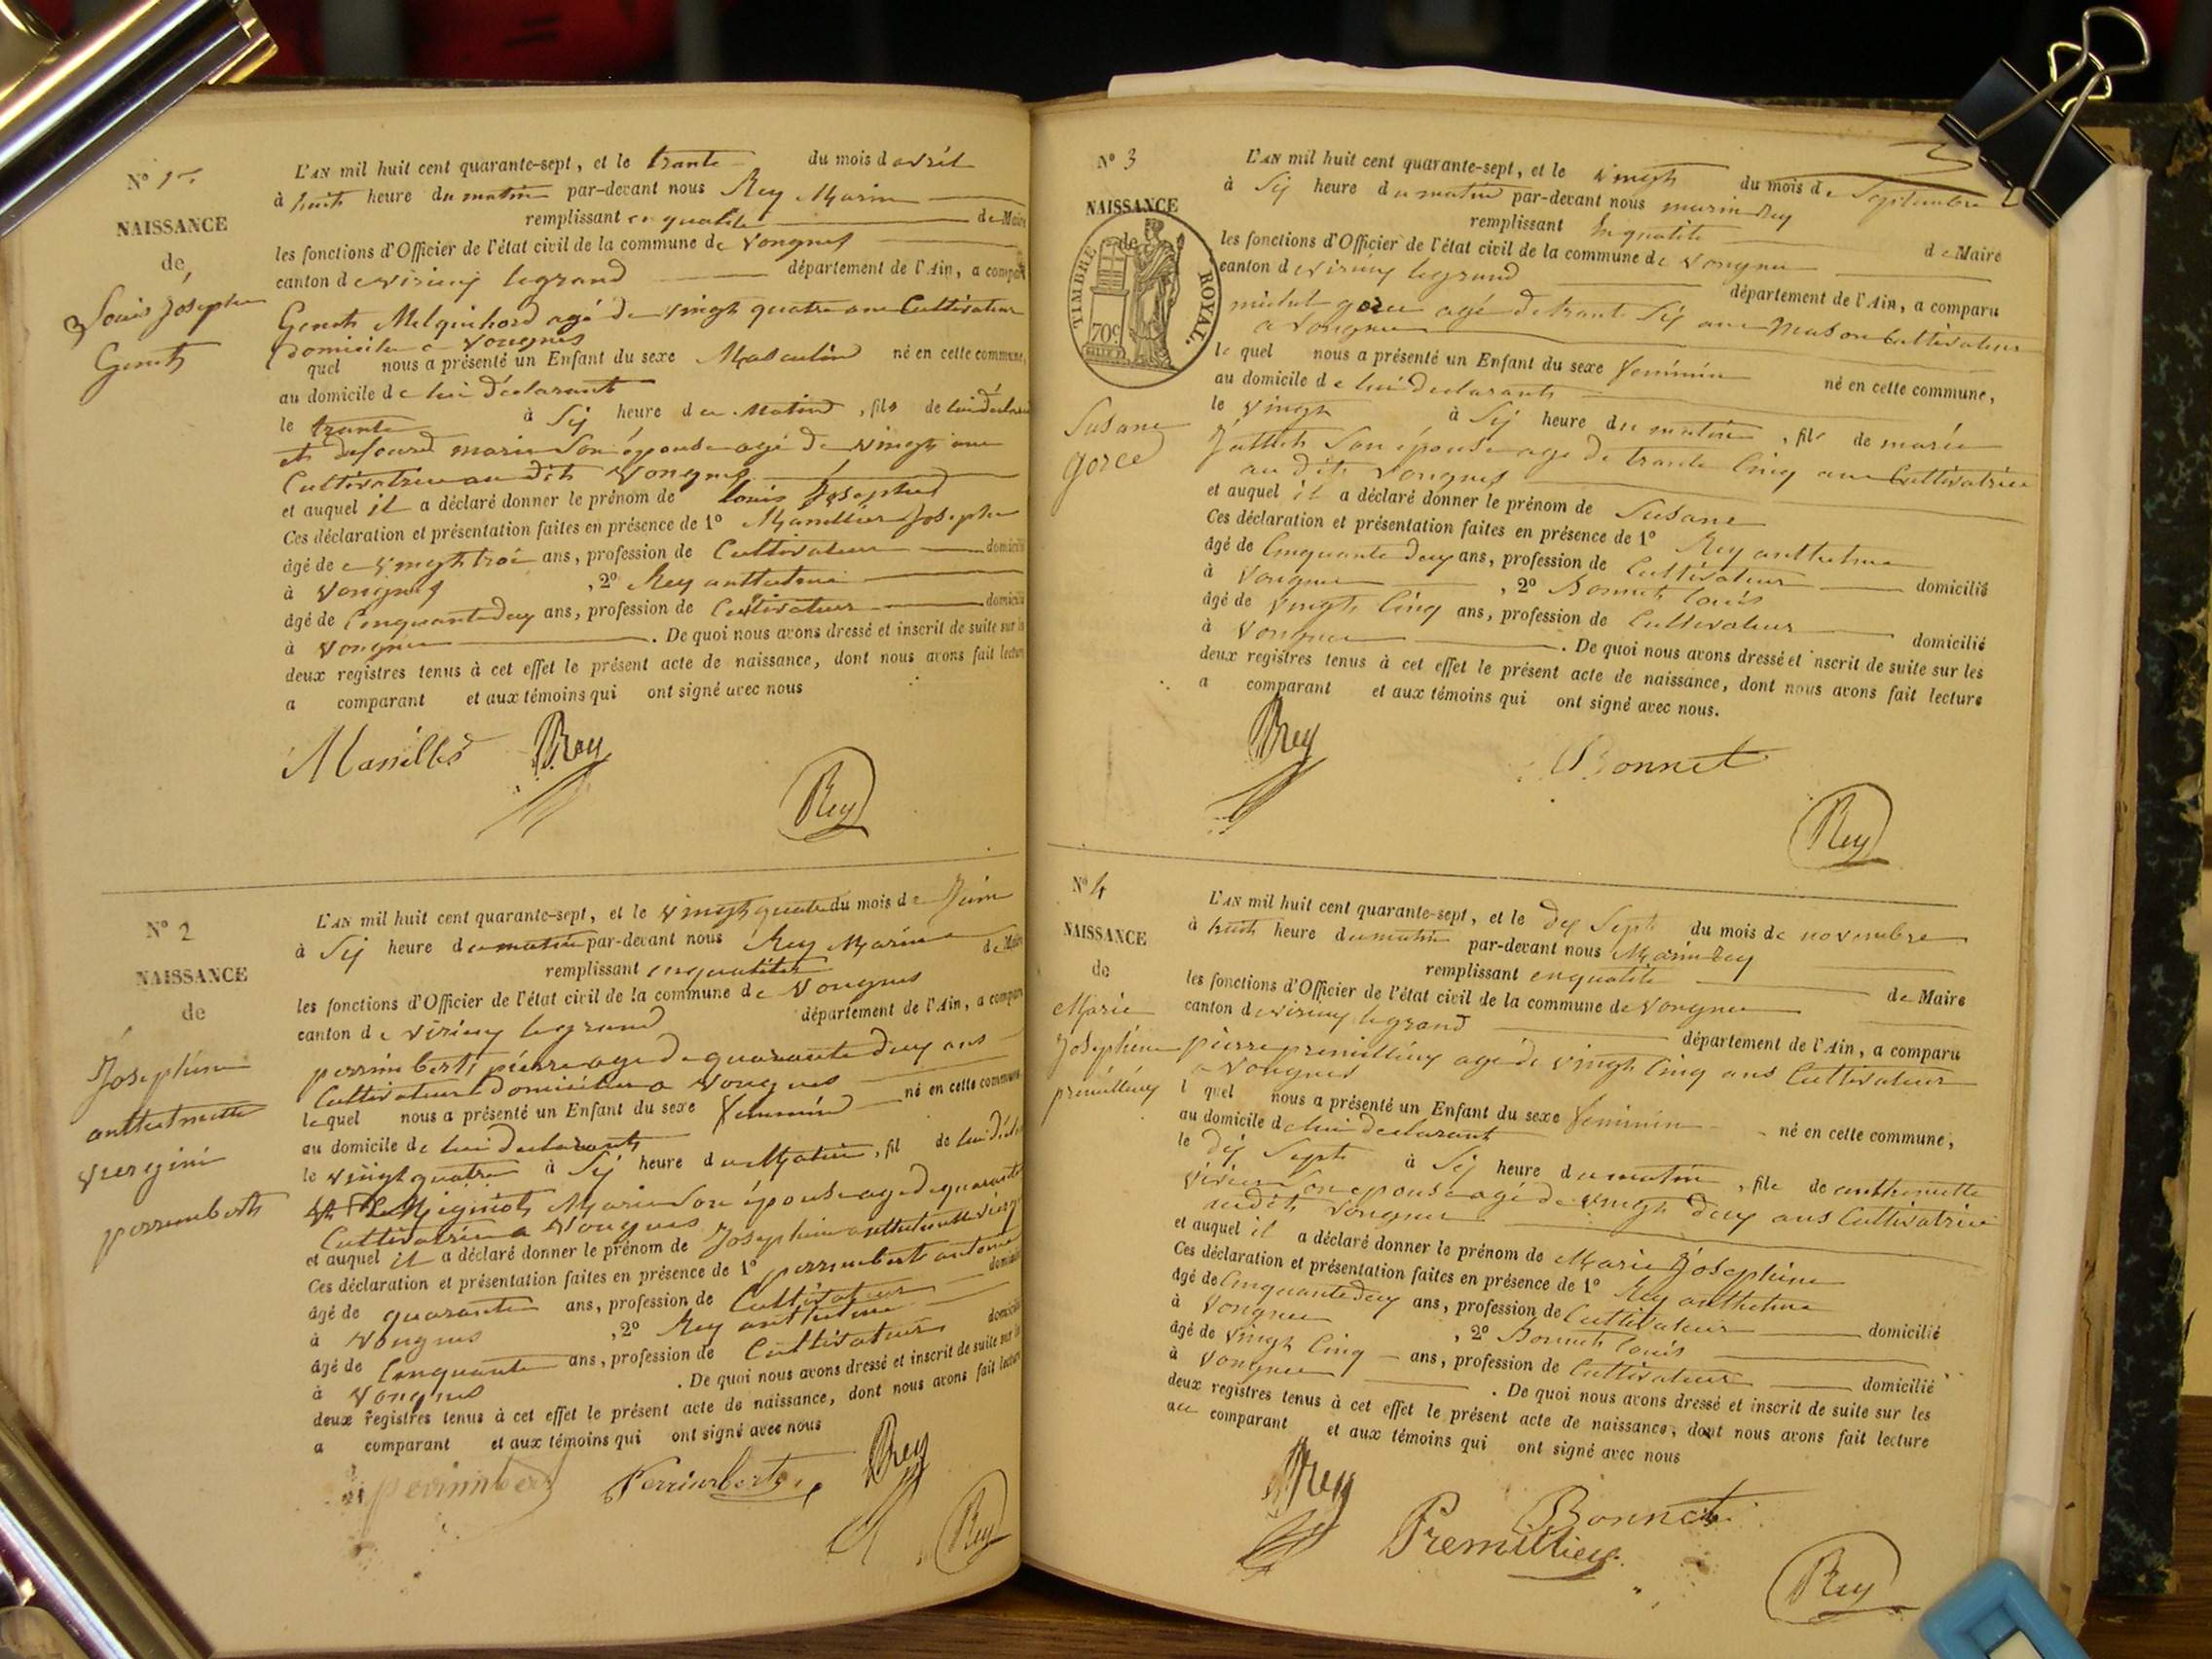 N° 1er
NAISSANCE
de
Louis Joseph
L'AN mil huit cent quarante-sept, et le trante du mois d avril
à huit heure du matin par-devant nous Rey Marin
remplissant en qualite de Maire
les fonctions d'Officier de l'état civil de la commune de Vongnes
canton de virieu legrand département de l'Ain, a comparu
agé de vingt quatre ans Cultivateur
domicile a Vongnes
quel nous a présenté un Enfant du sexe Masculin né en cette commune,
au domicile de lui déclarant
le trante à Sij heure du Matin, fils de lui déclarant
et marie Son épouse agé de vingt ans
Cultivatrice au dit Vongnes
et auquel il a déclaré donner le prénom de louis Joseph
Ces déclaration et présentation faites en présence de 1° Joseph
âgé de vingt troi ans, profession de Cultivateur domicilié
à Vongnes, 2° Rey anthelme
âgé de Cinquante deuy ans, profession de Cultivateur domicilié
à Vongnes. De quoi nous avons dressé et inscrit de suite sur les
deux registres tenus à cet effet le présent acte de naissance, dont nous avons fait lecture
a comparant et aux témoins qui ont signé avec nous
Rey
Rey
N° 2
NAISSANCE
de
Josephine
anthelmette
viergini
perrimbert
L'AN mil huit cent quarante-sept, et le vingt quatre du mois de Juin
à Sij heure du matin par-devant nous Rey Marin de Maire
remplissant en qualite
les fonctions d'Officier de l'état civil de la commune de Vongnes
canton de virieu legrand département de l'Ain, a comparu
perrimbert pierre agé de quarante deuy ans
Cultivateur domicilié a Vongnes
lequel nous a présenté un Enfant du sexe feminin né en cette commune,
au domicile de lui declarant
le vingt quatre à Sij heure du Matin, fil de lui
Marie Son épouse agé de quarante
Cultivatrice a Vongnes
et auquel il a déclaré donner le prénom de Josephine anthelmette
Ces déclaration et présentation faites en présence de 1° perrimbert antoine
âgé de quarante ans, profession de Cultivateur domicilié
à Vongnes, 2° Rey anthelme
âgé de Cinquante ans, profession de Cultivateur domicilié
à Vongnes. De quoi nous avons dressé et inscrit de suite sur les
deux registres tenus à cet effet le présent acte de naissance, dont nous avons fait lecture
a comparant et aux témoins qui ont signé avec nous
perrimbert Perrimbert Rey
Rey
N° 3
NAISSANCE
de
TIMBRE ROYAL.
70c
Susane
gorce
L'AN mil huit cent quarante-sept, et le vingt du mois de Septembre
à Sij heure du matin par-devant nous marin Rey
remplissant en qualite de Maire
les fonctions d'Officier de l'état civil de la commune de Vongnes
canton de virieu legrand département de l'Ain, a comparu
gorce agé de trante Sij ans Cultivateur
a Vongnes
le quel nous a présenté un Enfant du sexe feminin né en cette commune,
au domicile de lui declarant
le vingt à Sij heure du matin, file de marie
Son épouse age de trante Cinq ans Cultivatrice
au dit Vongnes
et auquel il a déclaré donner le prénom de Susane
Ces déclaration et présentation faites en présence de 1° Rey anthelme
âgé de Cinquante deuy ans, profession de Cultivateur domicilié
à Vongnes, 2° Bonnet louis
âgé de vingt Cinq ans, profession de Cultivateur domicilié
à Vongnes. De quoi nous avons dressé et inscrit de suite sur les
deux registres tenus à cet effet le présent acte de naissance, dont nous avons fait lecture
a comparant et aux témoins qui ont signé avec nous.
Rey Bonnet
Rey
N° 4
NAISSANCE
de
Marie
Josephine
premillieu
L'AN mil huit cent quarante-sept, et le dij Sept du mois de novembre
à huit heure du matin par-devant nous Marin Rey
remplissant en qualite de Maire
les fonctions d'Officier de l'état civil de la commune de Vongnes
canton de virieu legrand département de l'Ain, a comparu
pierre premillieu agé de vingt Cinq ans Cultivateur
a Vongnes
l quel nous a présenté un Enfant du sexe feminin né en cette commune,
au domicile de lui declarant
le dij Sept à Sij heure du matin, file de
Son epouse agé de vingt deuy ans Cultivatrice
audit Vongnes
et auquel il a déclaré donner le prénom de Marie Josephine
Ces déclaration et présentation faites en présence de 1° Rey anthelme
âgé de Cinquante deuy ans, profession de Cultivateur domicilié
à Vongnes, 2° Bonnet louis
âgé de vingt Cinq ans, profession de Cultivateur domicilié
à Vongnes. De quoi nous avons dressé et inscrit de suite sur les
deux registres tenus à cet effet le présent acte de naissance, dont nous avons fait lecture
au comparant et aux témoins qui ont signé avec nous
Rey Bonnet
Premillieu
Rey